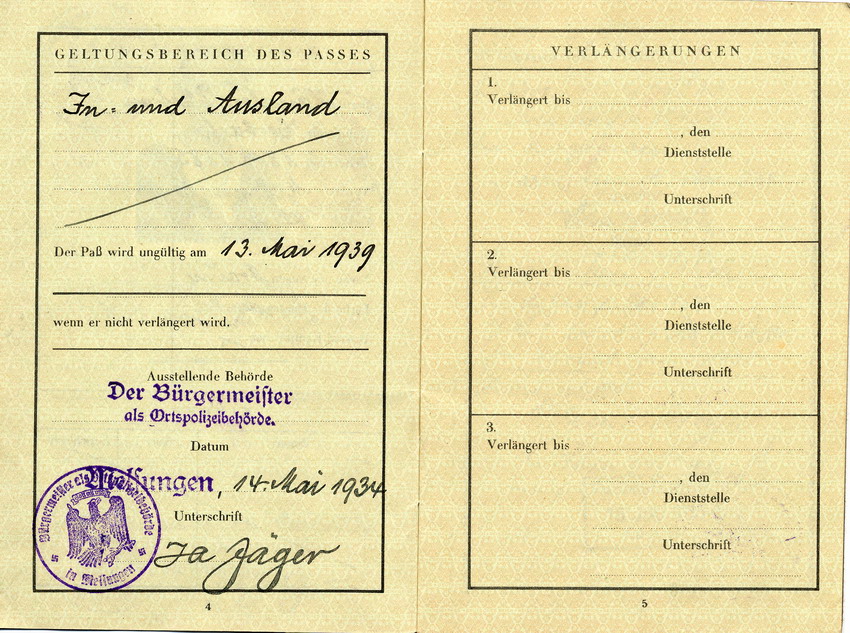 GELTUNGSBEREICH DES PASSES
In- und Ausland
Der Paß wird ungültig am 13. Mai 1939
wenn er nicht verlängert wird.
Ausstellende Behörde
Der Bürgermeister
als Ortspolizeibehörde.
Datum
Melsungen, 14. Mai 1934
Unterschrift
Bürgermeister als Ortspolizeibehörde
in Melsungen
Ja Jäger
4
VERLÄNGERUNGEN
1.
Verlängert bis
, den
Dienststelle
Unterschrift
2.
Verlängert bis
, den
Dienststelle
Unterschrift
3.
Verlängert bis
, den
Dienststelle
Unterschrift
5